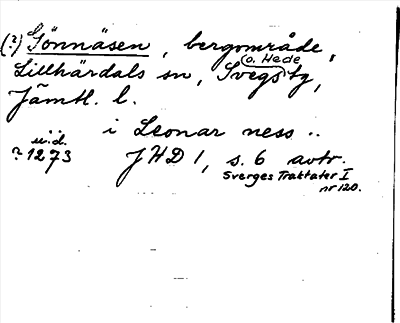 (?) Gönnäsen, bergområde,
Lillhärdals sn, Svegs (o. Hede) tg,
Jämtl. l.
i Leonar ness ..
u.d.
? 1273 JHD 1, s. 6 avtr.
Sverges Traktater I
nr 120.